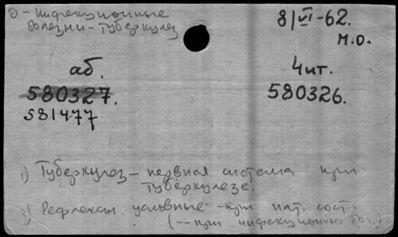 Э - инфекционные
болезни - туберкулез
8/VI-62.
М.О.
аб.
580327.
581477
Чит.
580326.
1) Туберкулез - нервная система при
туберкулезе.
2) Рефлексы условные - при пат. сост.
(-- при инфекционных бол.)